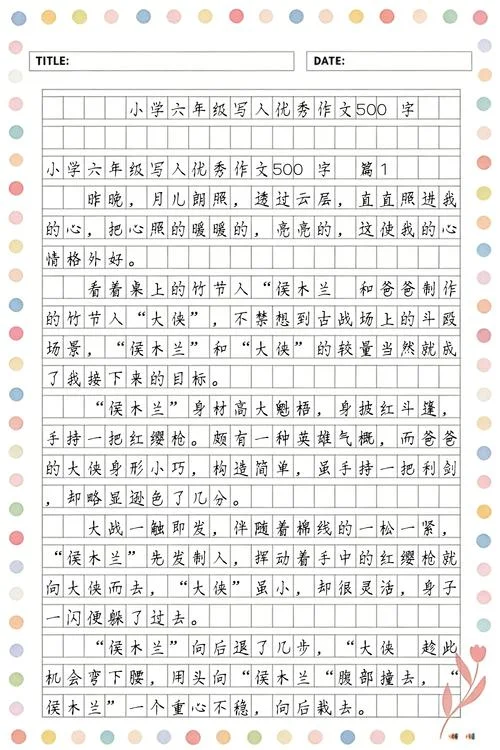 TITLE:
DATE:
小学六年级写人优秀作文500 字
小学六年级写人优秀作文500 字 篇1
昨晚，月儿朗照，透过云层，直直照进我
的心，把心照的暖暖的，亮亮的，这使我的心
情格外好。
看着桌上的竹节人“侯木兰 和爸爸制作
的竹节人“大侠”，不禁想到古战场上的斗殴
场景，“侯木兰”和“大侠”的较量当然就成
了我接下来的目标。
“侯木兰”身材高大魁梧，身披红斗篷，
手持一把红缨枪。颇有一种英雄气概，而爸爸
的大侠身形小巧，构造简单，虽手持一把利剑
，却略显逊色了几分。
大战一触即发，伴随着棉线的一松一紧，
“侯木兰”先发制人，挥动着手中的红缨枪就
向大侠而去，“大侠”虽小，却很灵活，身子
一闪便躲了过去。
“侯木兰”向后退了几步，“大侠 趁此
机会弯下腰，用头向“侯木兰“腹部撞去，“
侯木兰”一个重心不稳，向后栽去。